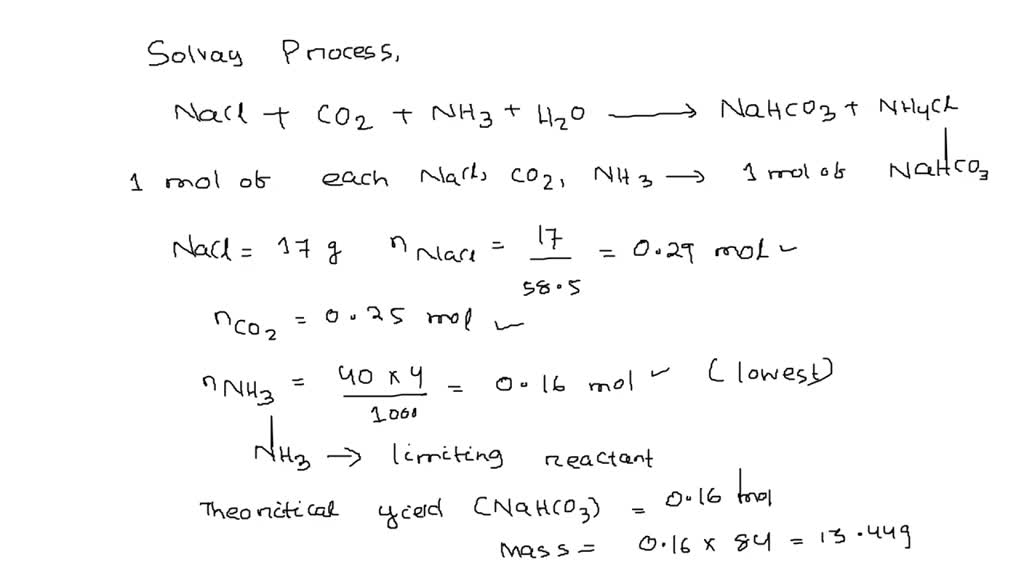 Solvay Process,
NaCl + CO2 + NH3 + H2O ⟶ NaHCO3 + NH4Cl
1 mol of each NaCl, CO2, NH3 ⟶ 1 mol of NaHCO3
NaCl = 17 g nNaCl = 17/58.5 = 0.29 mol ✓
nCO2 = 0.25 mol ✓
nNH3 = 40 × 4/1000 = 0.16 mol ✓ (lowest)
NH3 → limiting reactant
Theoritical yield (NaHCO3) = 0.16 mol
Mass = 0.16 × 84 = 13.44g